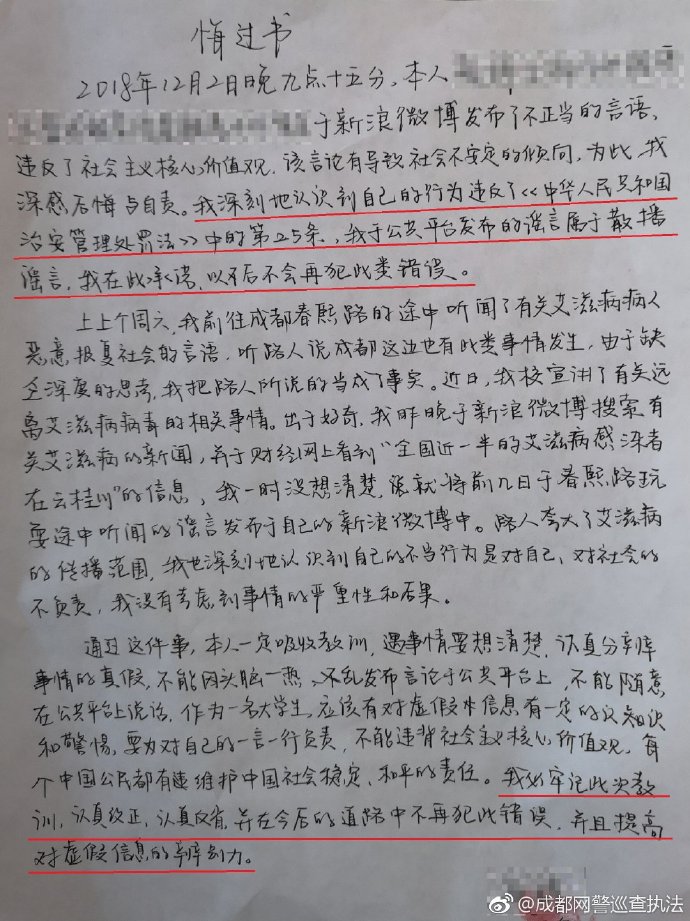 悔过书
2018年12月2日晚九点十五分，本人
于新浪微博发布了不正当的言语，
违反了社会主义核心价值观，该言论有导致社会不安定的倾向，为此，我
深感后悔与自责。我深刻地认识到自己的行为违反了《中华人民共和国
治安管理处罚法》中的第25条，我于公共平台发布的谣言属于散播
谣言，我在此承诺，以后不会再犯此类错误。
上上个周六，我前往成都春熙路的途中听闻了有关艾滋病病人
恶意报复社会的言语，听路人说成都这边也有此类事情发生，由于缺
乏深度的思考，我把路人所说的当成了事实。近日，我校宣讲了有关远
离艾滋病病毒的相关事情。出于好奇，我昨晚于新浪微博搜索有
关艾滋病的新闻，并于财经网上看到“全国近一半的艾滋病感染者
在云桂川”的信息，我一时没想清楚，就将前几日于春熙路玩
耍途中听闻的谣言发布于自己的新浪微博中。路人夸大了艾滋病
的传播范围，我也深刻地认识到自己的不当行为是对自己、对社会的
不负责，我没有考虑到事情的严重性和后果。
通过这件事，本人一定吸收教训，遇事情要想清楚，认真分辨
事情的真假，不能因头脑一热、不乱发布言论于公共平台上，不能随意
在公共平台上说话，作为一名大学生，应该有对虚假信息有一定的认知识
和警惕，要为对自己的一言一行负责，不能违背社会主义核心价值观，每
个中国公民都有维护中国社会稳定、和平的责任。我必牢记此次教
训，认真改正，认真反省，并在今后的道路中不再犯此错误，并且提高
对虚假信息的辨别力。
@成都网警巡查执法